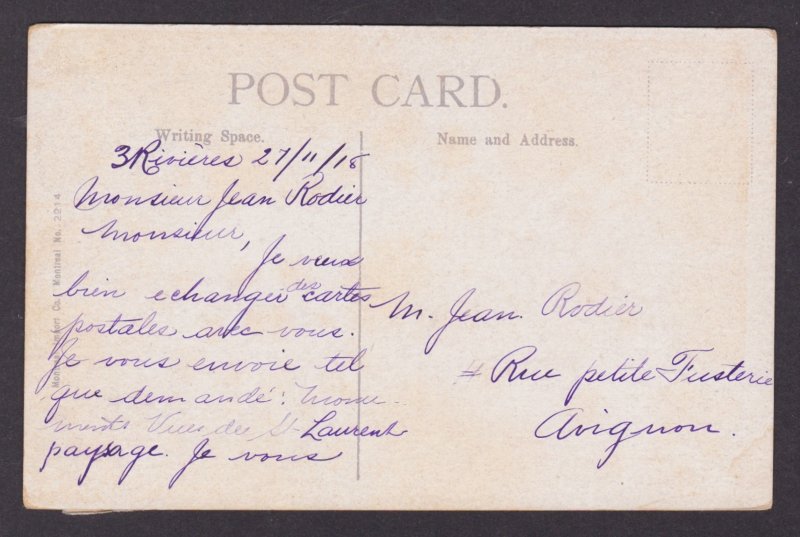 POST CARD.
Writing Space.
Name and Address.
3Rivières 27/11/18
Monsieur Jean Rodier
Monsieur,
Je veux
bien echanger des cartes
postales avec vous.
Je vous envoie tel
que demandé: Monu-
ments Vues des St Laurent
paysage. Je vous
M. Jean Rodier
Rue petite Fusterie
Avignon.
Import Co., Montreal No. 2214